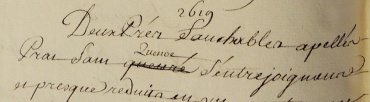 2619
Deux Prés fauchables apellés
Prat Sam Quenoé S'entrejoignant
et presque reduits en un